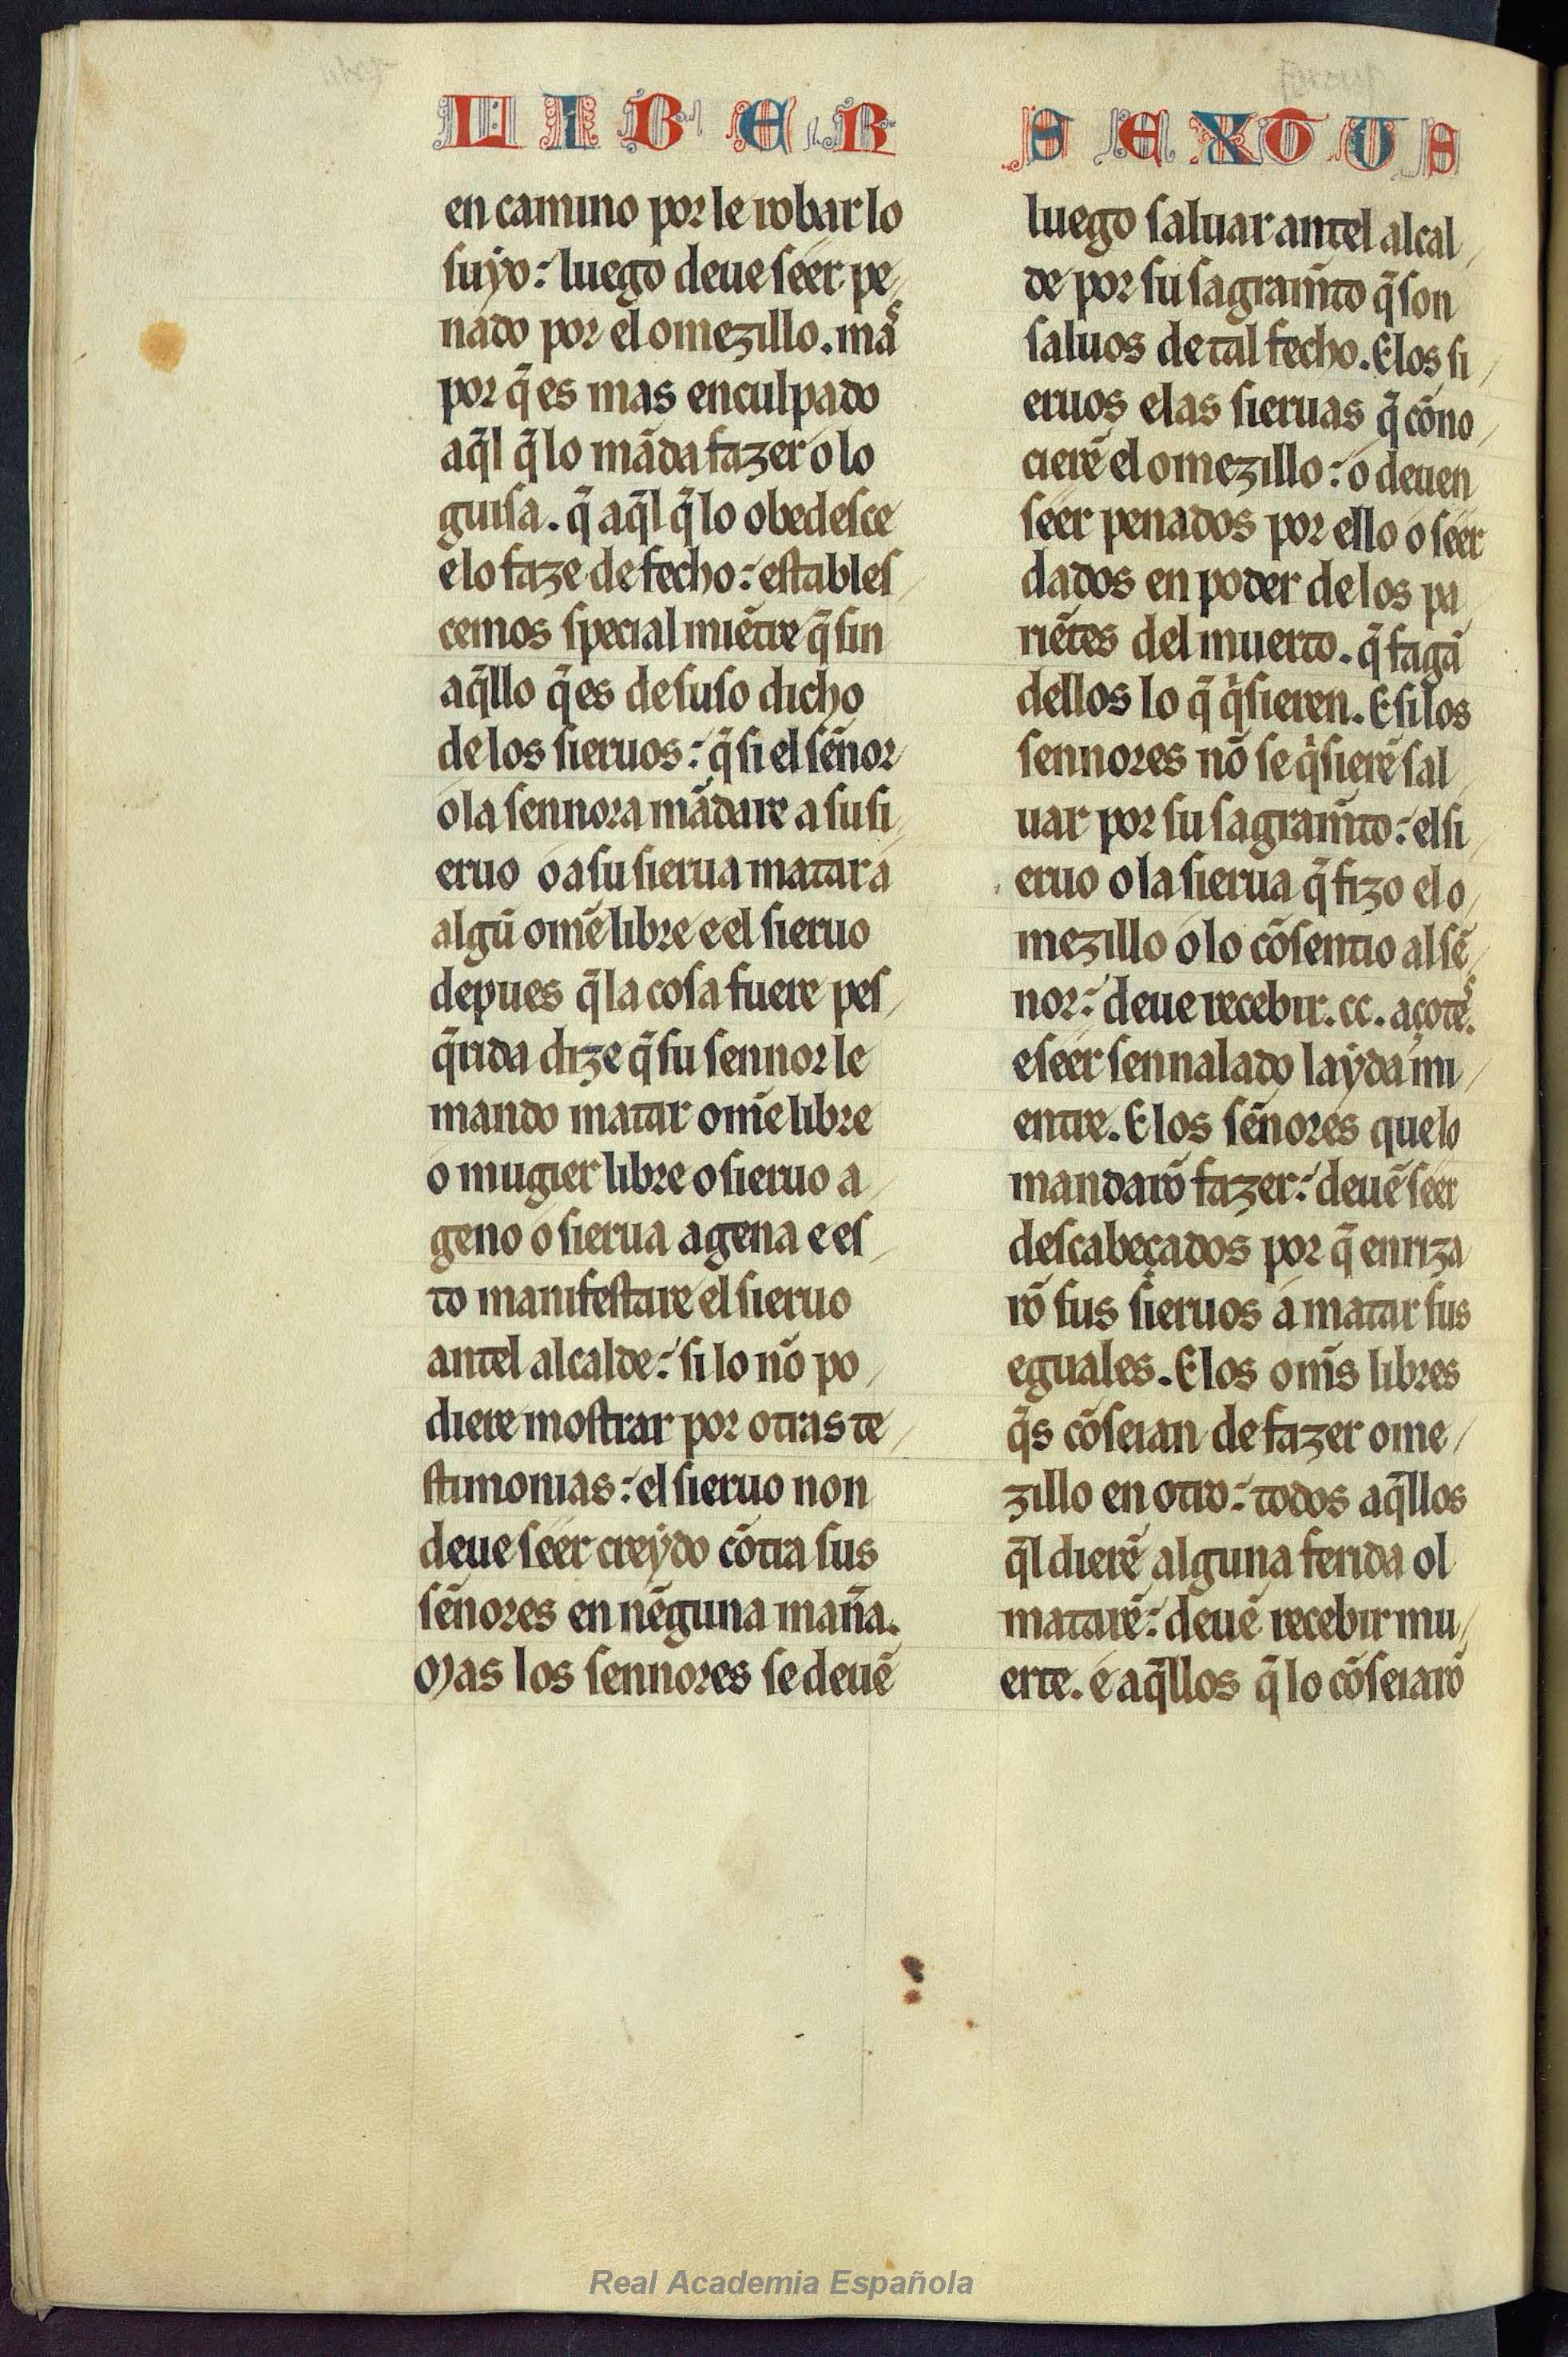 LIBER
en camino por le robar lo
suẏo: luego deue seer pe
nado por el omezillo. maˢ
por q̄ es mas enculpado
aq̄l q̄ lo mādafazer o lo
guisa. q̄ aq̄l q̄ lo obedesce
e lo faze de fecho: estables
cemos special miētre q̄ sin
aq̄llo q̄ es desuso dicho
de los sieruos: q̄ si el sēnor
o la sennora mādare a su si
eruo o a su sierua matar a
algū omē libre e el sieruo
depues q̄ la cosa fuere pes
q̄rida dize q̄ su sennor le
mando matar omē libre
o mugier libre o sieruo a
geno o sierua agena e es
to manifestare el sieruo
antel alcalde: si lo nō po
diere mostrar por otras te
stimonias: el sieruo non
deue seer creẏdo cōtra sus
sēnores en nēguna man̄a.
Mas los sennores se deuē
SEXTUS
luego saluar antel alcal
de por su sagram̄to q̄ son
saluos de tal fecho. E los si
eruos e las sieruas q̄ cōno
cierē el omezillo: o deuen
seer penados por ello o seer
dados en poder de los pa
riētes del muerto. q̄ fagā
dellos lo q̄ qⁱsieren. E si los
sennores nō se qⁱsierē sal
uar por su sagram̄to: el si
eruo o la sierua q̄ fizo el o
mezillo o lo cōsentio al sē
nor: deue recebir. cc. açoteˢ.
e seer sennalado laẏda mi
entre. E los sēnores que lo
mandarō fazer: deuē seer
descabeçados por q̄ enriza
rō sus sieruos a matar sus
eguales. E los om̄s libres
q̄s cōseian de fazer ome
zillo en otro: todos aq̄llos
q̄l dierē alguna ferida ol
matarē: deuē recebir mu
erte. e aq̄llos q̄ lo cōseiarō
Real Academia Española